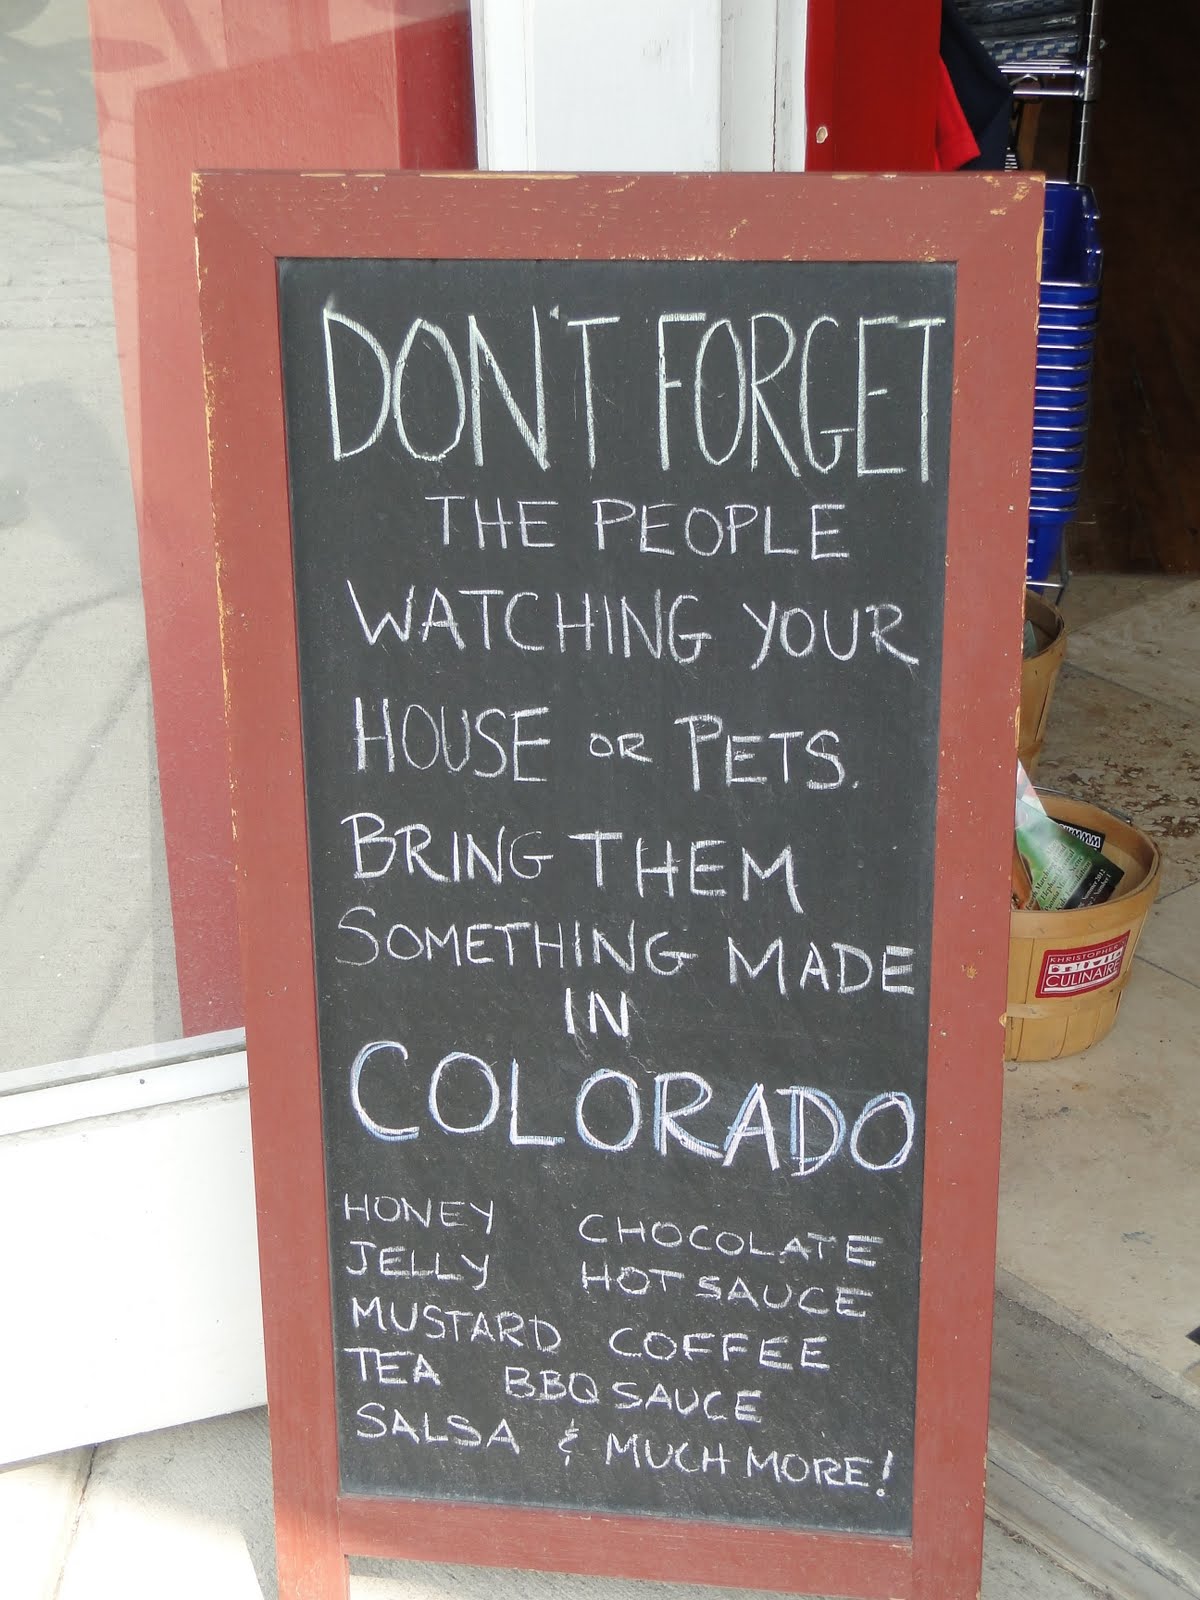 DON'T FORGET
THE PEOPLE
WATCHING YOUR
HOUSE OR PETS.
BRING THEM
SOMETHING MADE
IN
COLORADO
HONEY CHOCOLATE
JELLY HOT SAUCE
MUSTARD COFFEE
TEA BBQ SAUCE
SALSA & MUCH MORE!
KHRISTOPHER
CULINAIRE